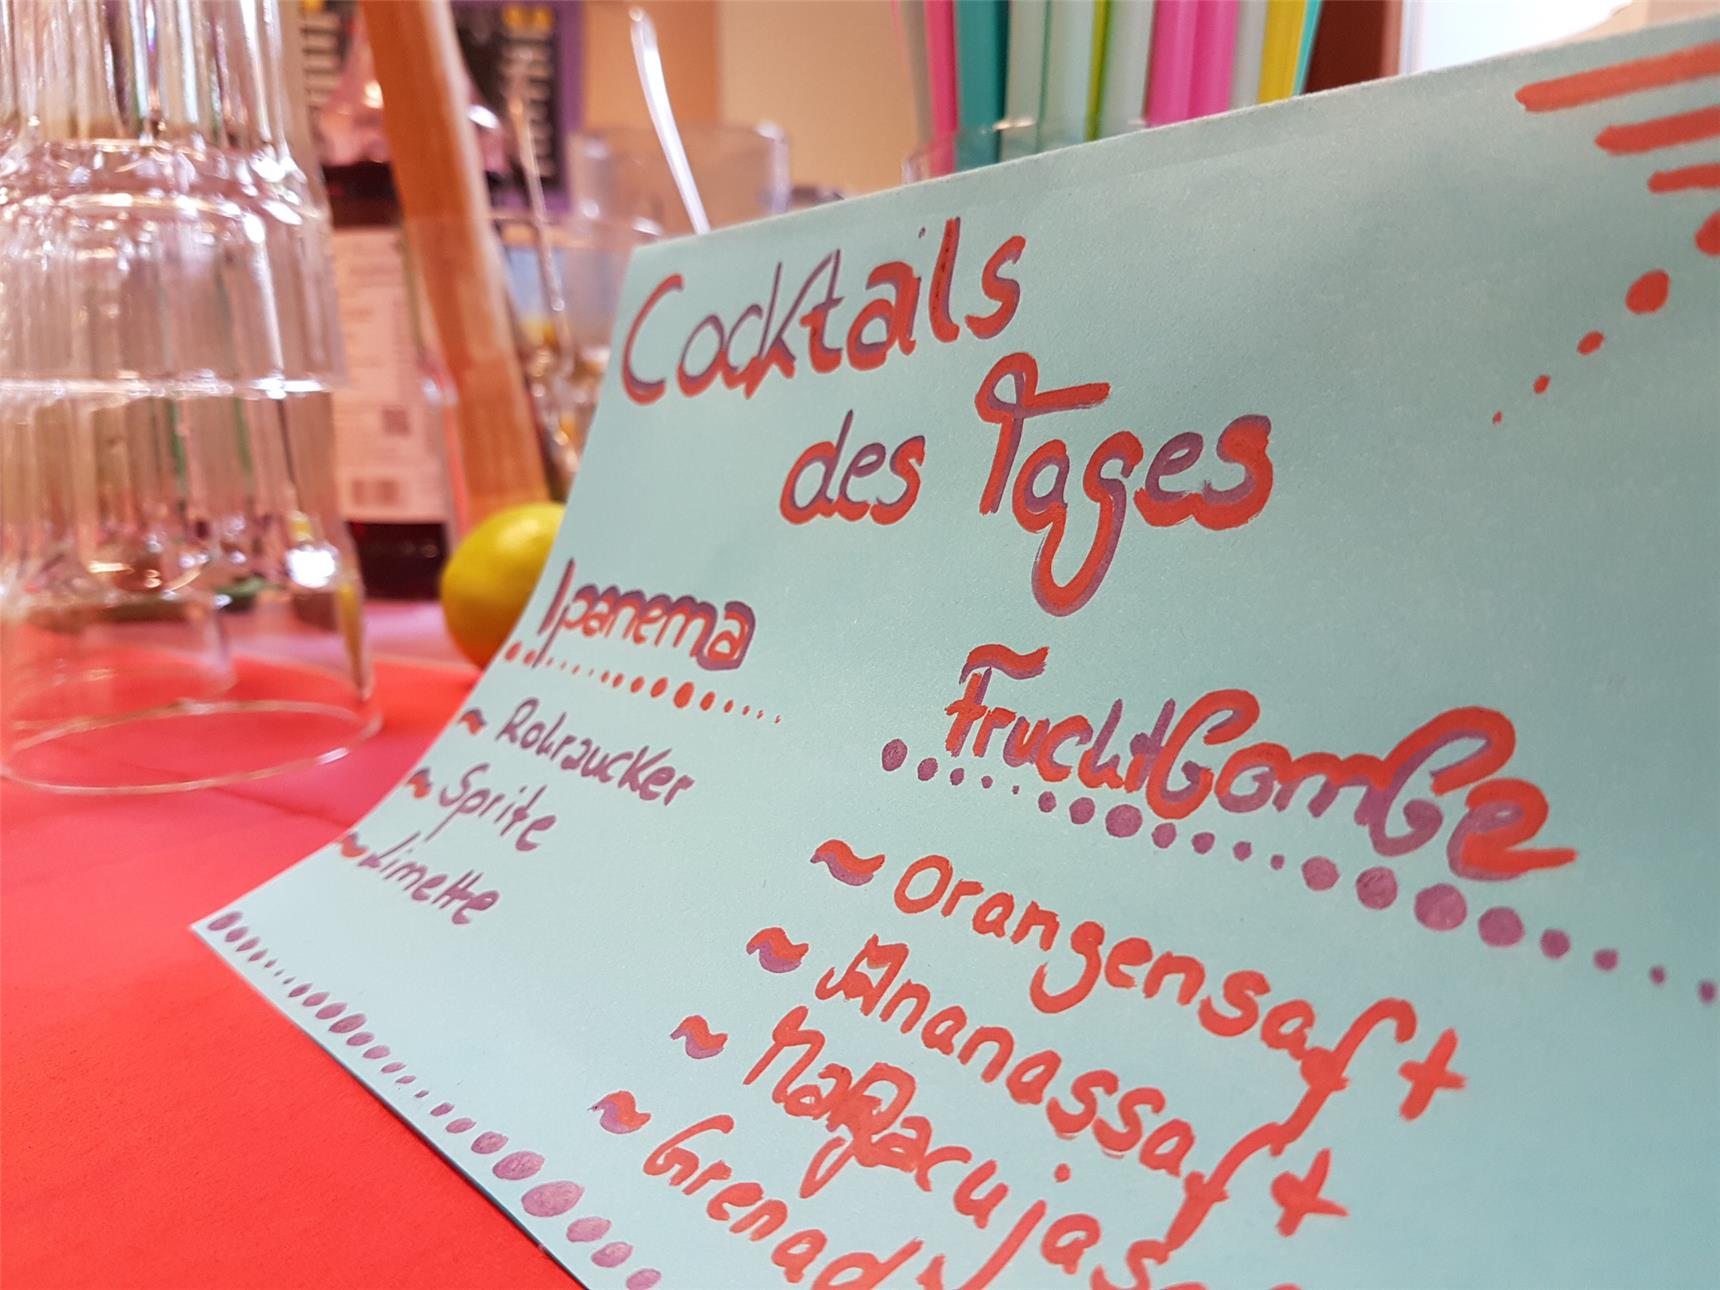 Cocktails
des Tages
Ipanema
~ Rohrzucker
~ Sprite
~ Limette
Fruchtbombe
~ Orangensaft
~ Ananassaft
~ Maracujas
~ Grenad